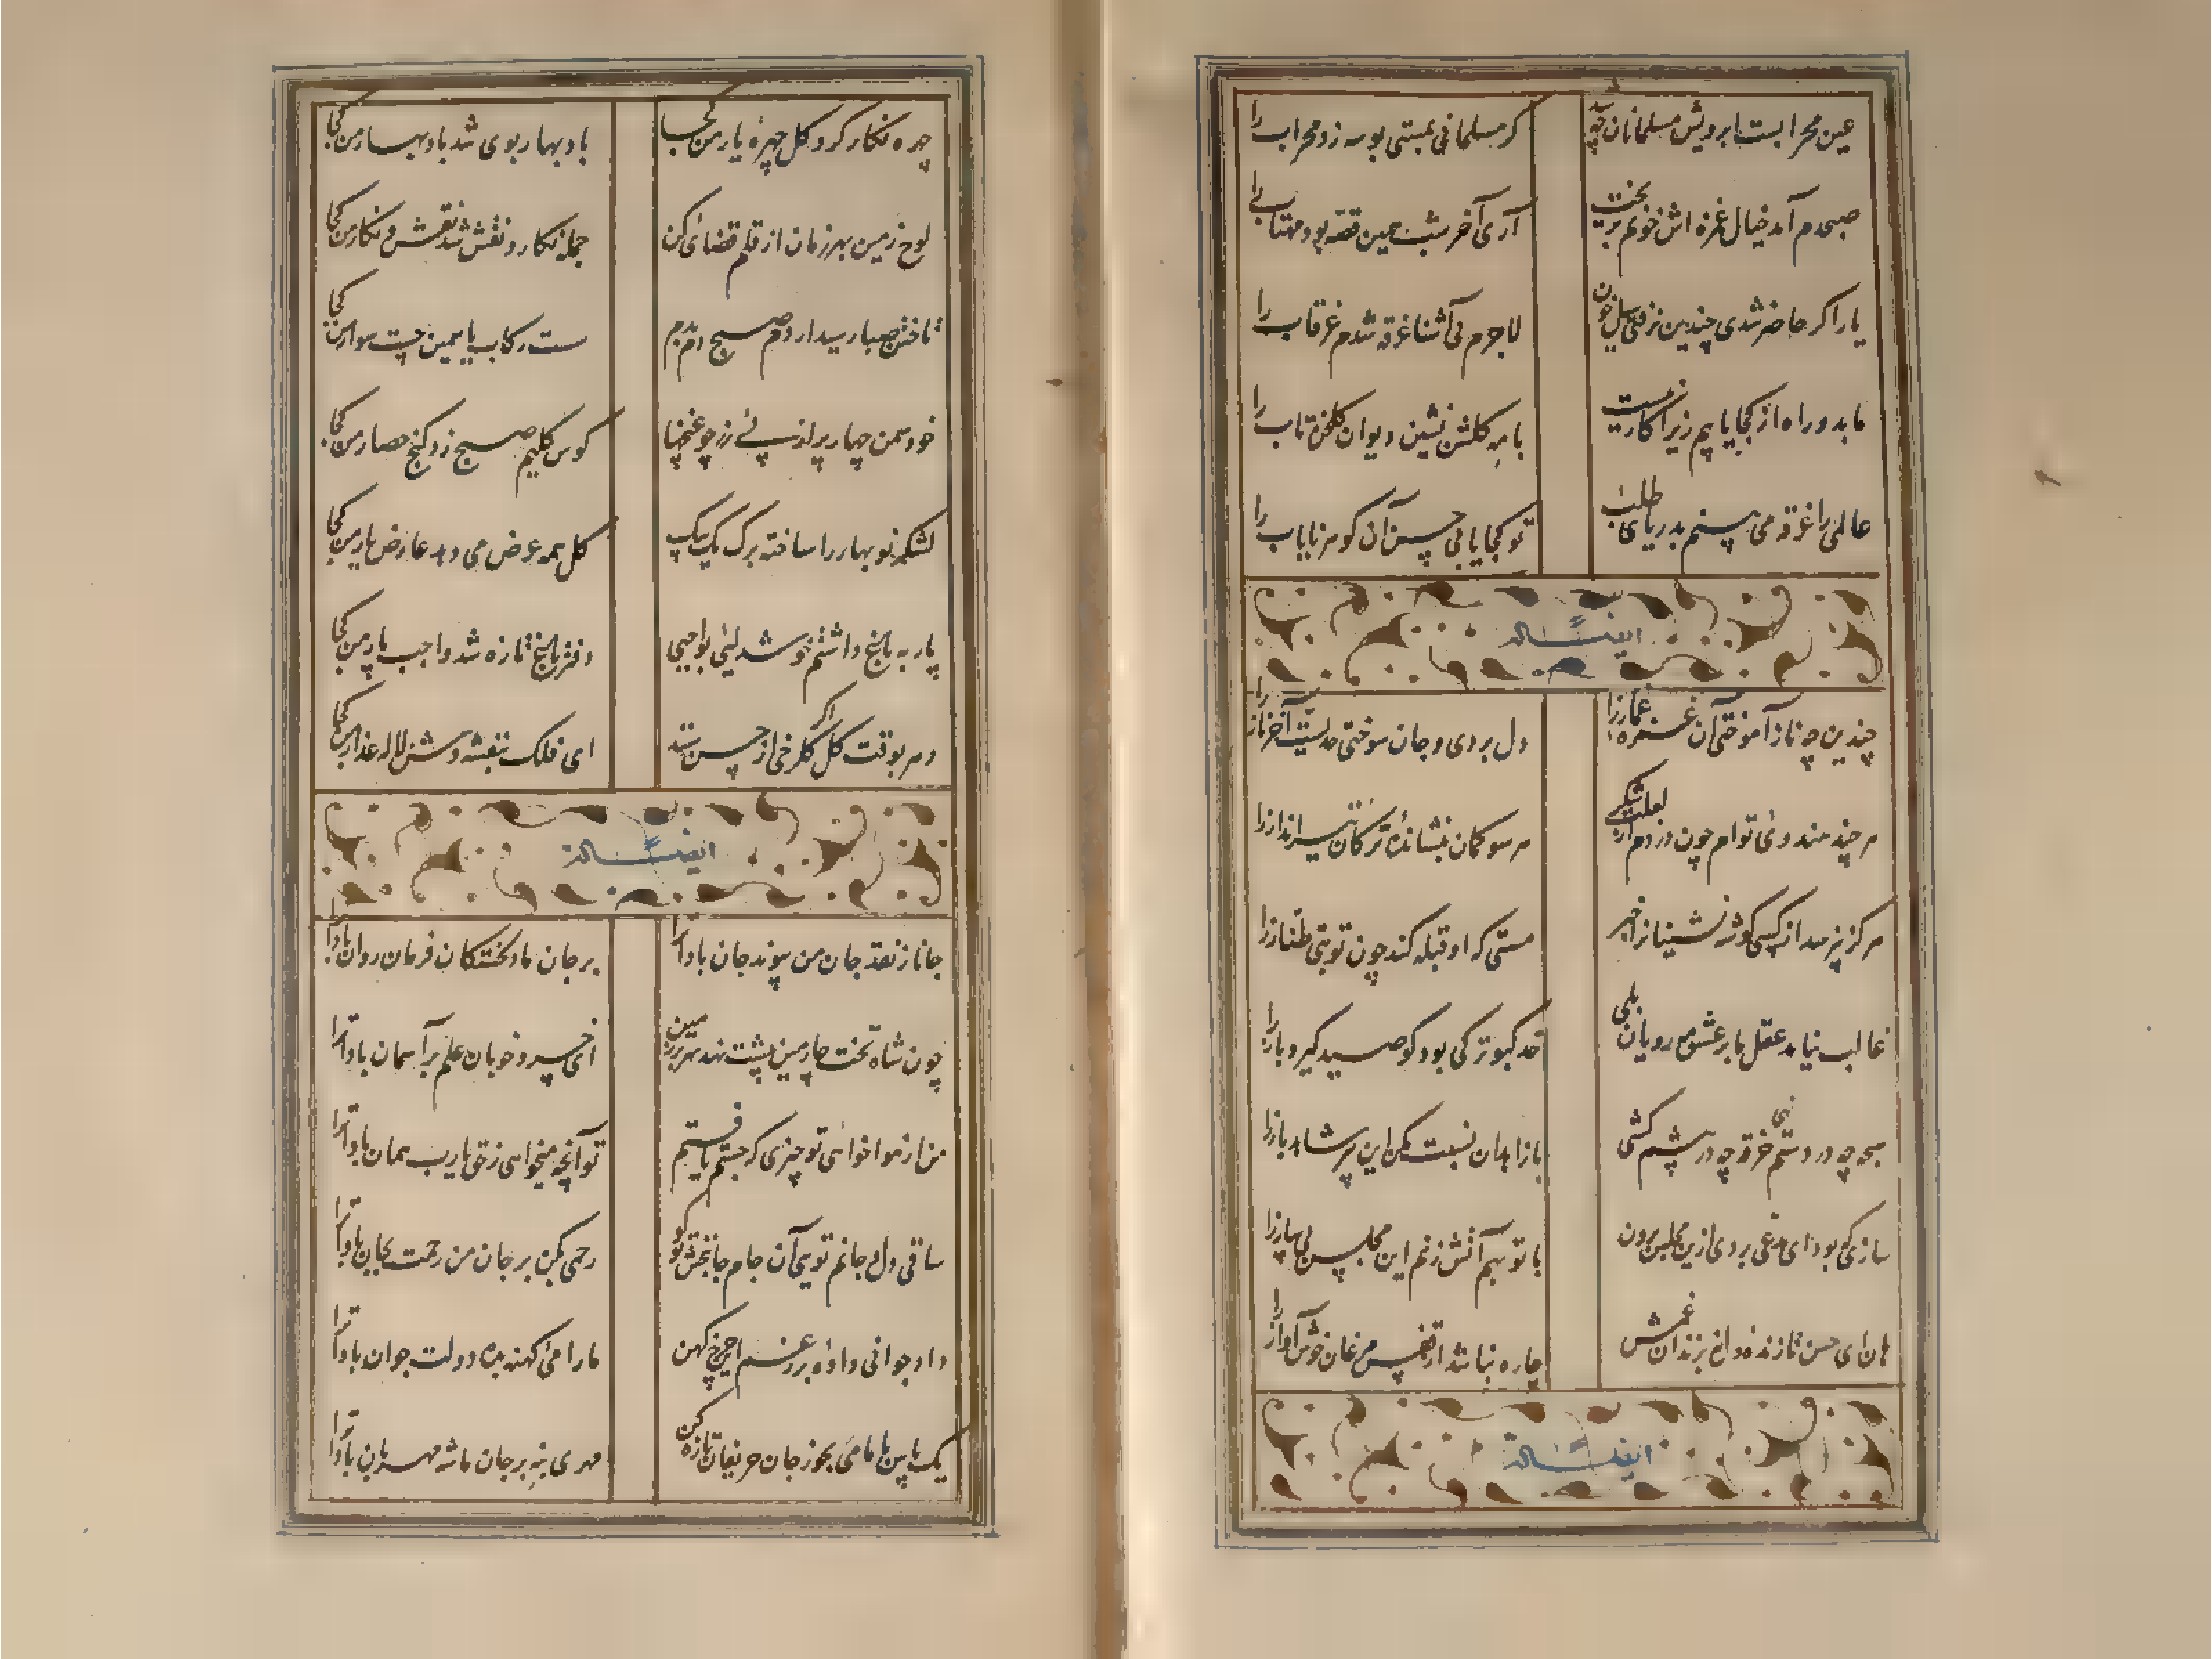 عین محرابست ابرویش مسلمانان چو دید
کر مسلمانی عبستی بوسه زد محراب را
صبحدم آمد خیال غمزه اش خونم بریخت
آری آخر شب همین قصه بود مهتاب را
یار اکر حاضر شدی چندین نرفتی سیل خون
لاجرم بی آشنا غرقه شدم غرقاب را
ما بدو راه از کجا یابیم زیرا کار نیست
با مه کلشن نشین دیوان کلخن تاب را
عالمی را غرقه می بینم بدریای طلب
تو کجا یابی حسن آن کوهر نایاب را
ایضا له
چندین چه ناز آموختی آن غمزه غماز را
دل بردی و جان سوختی حدیست آخر ناز را
هر چند هندوی توام چون دزدم از لعلت شکر
هر سو کمان بنشانده ترکان تیرانداز را
هرکز نپرسد از کسی کوشه نشینان را خبر
مستی که او قبله کند چون تو بتی طناز را
غالب نیاید عقل ما بر عشق مه رویان بلی
حد کبوتر کی بود کو صید کیرد باز را
سبحه چه در دستم نهی خرقه چه در پشتم کشی
با زاهدان نسبت مکن این پیر شاهد باز را
ساز کی بود ای مدعی بردی ازین مجلس برون
با تو بهم آتش زنم این مجلس بی ساز را
هان ای حسن تا زنده داغ بزندان غمش
چاره نباشد از قفس مرغان خوش آواز را
ایضا له
چهره نکار کرد کل چهره یار من کجا
باد بهار بوی شد باد بهار من کجا
لوح زمین بهر زمان از قلم قضای کن
جمله نکار و نقش شد نقش و نکار من کجا
تاختن صبا رسید از دم صبح دم بدم
ست رکاب یاسمین چست سوار من کجا
خود سمن چهار پر از پی زر چو غنچها
کوس کلیم صبح زد کنج حصار من کجا
لشکر نو بهار را ساخته برک یک بیک
کل همه عرض می دهد عارض یار من کجا
پار به باغ داشتم خوش دلیی بواجبی
دفتر باغ تازه شد واجب پار من کجا
دهر بوقت کل اکر کلرخی از حسن ستد
ای فلک بنفشه وش لاله عذار من کجا
ایضا له
جانا ز نقد جان من پیوند جان بادا ترا
بر جان ما دلخستکان فرمان روان بادا ترا
چون شاه تخت چارمین پشت نهد سر بر زمین
ای خسرو خوبان علم بر آسمان بادا ترا
من از هوا خواهی تو چیزی که جستم یافتم
تو آنچه میخواهی ز حق یارب همان بادا ترا
ساقی دل و جانم تویی آن جام جانبخش تو کو
رحمی بکن بر جان من رحمت بجان بادا ترا
داد جوانی داده بر رغم این چرخ کهن
ما را می کهنه بده دولت جوان بادا ترا
یک با پس با ما می بخور جان حریفان تازه کن
مهری بنه بر جان ما شه مهربان بادا ترا